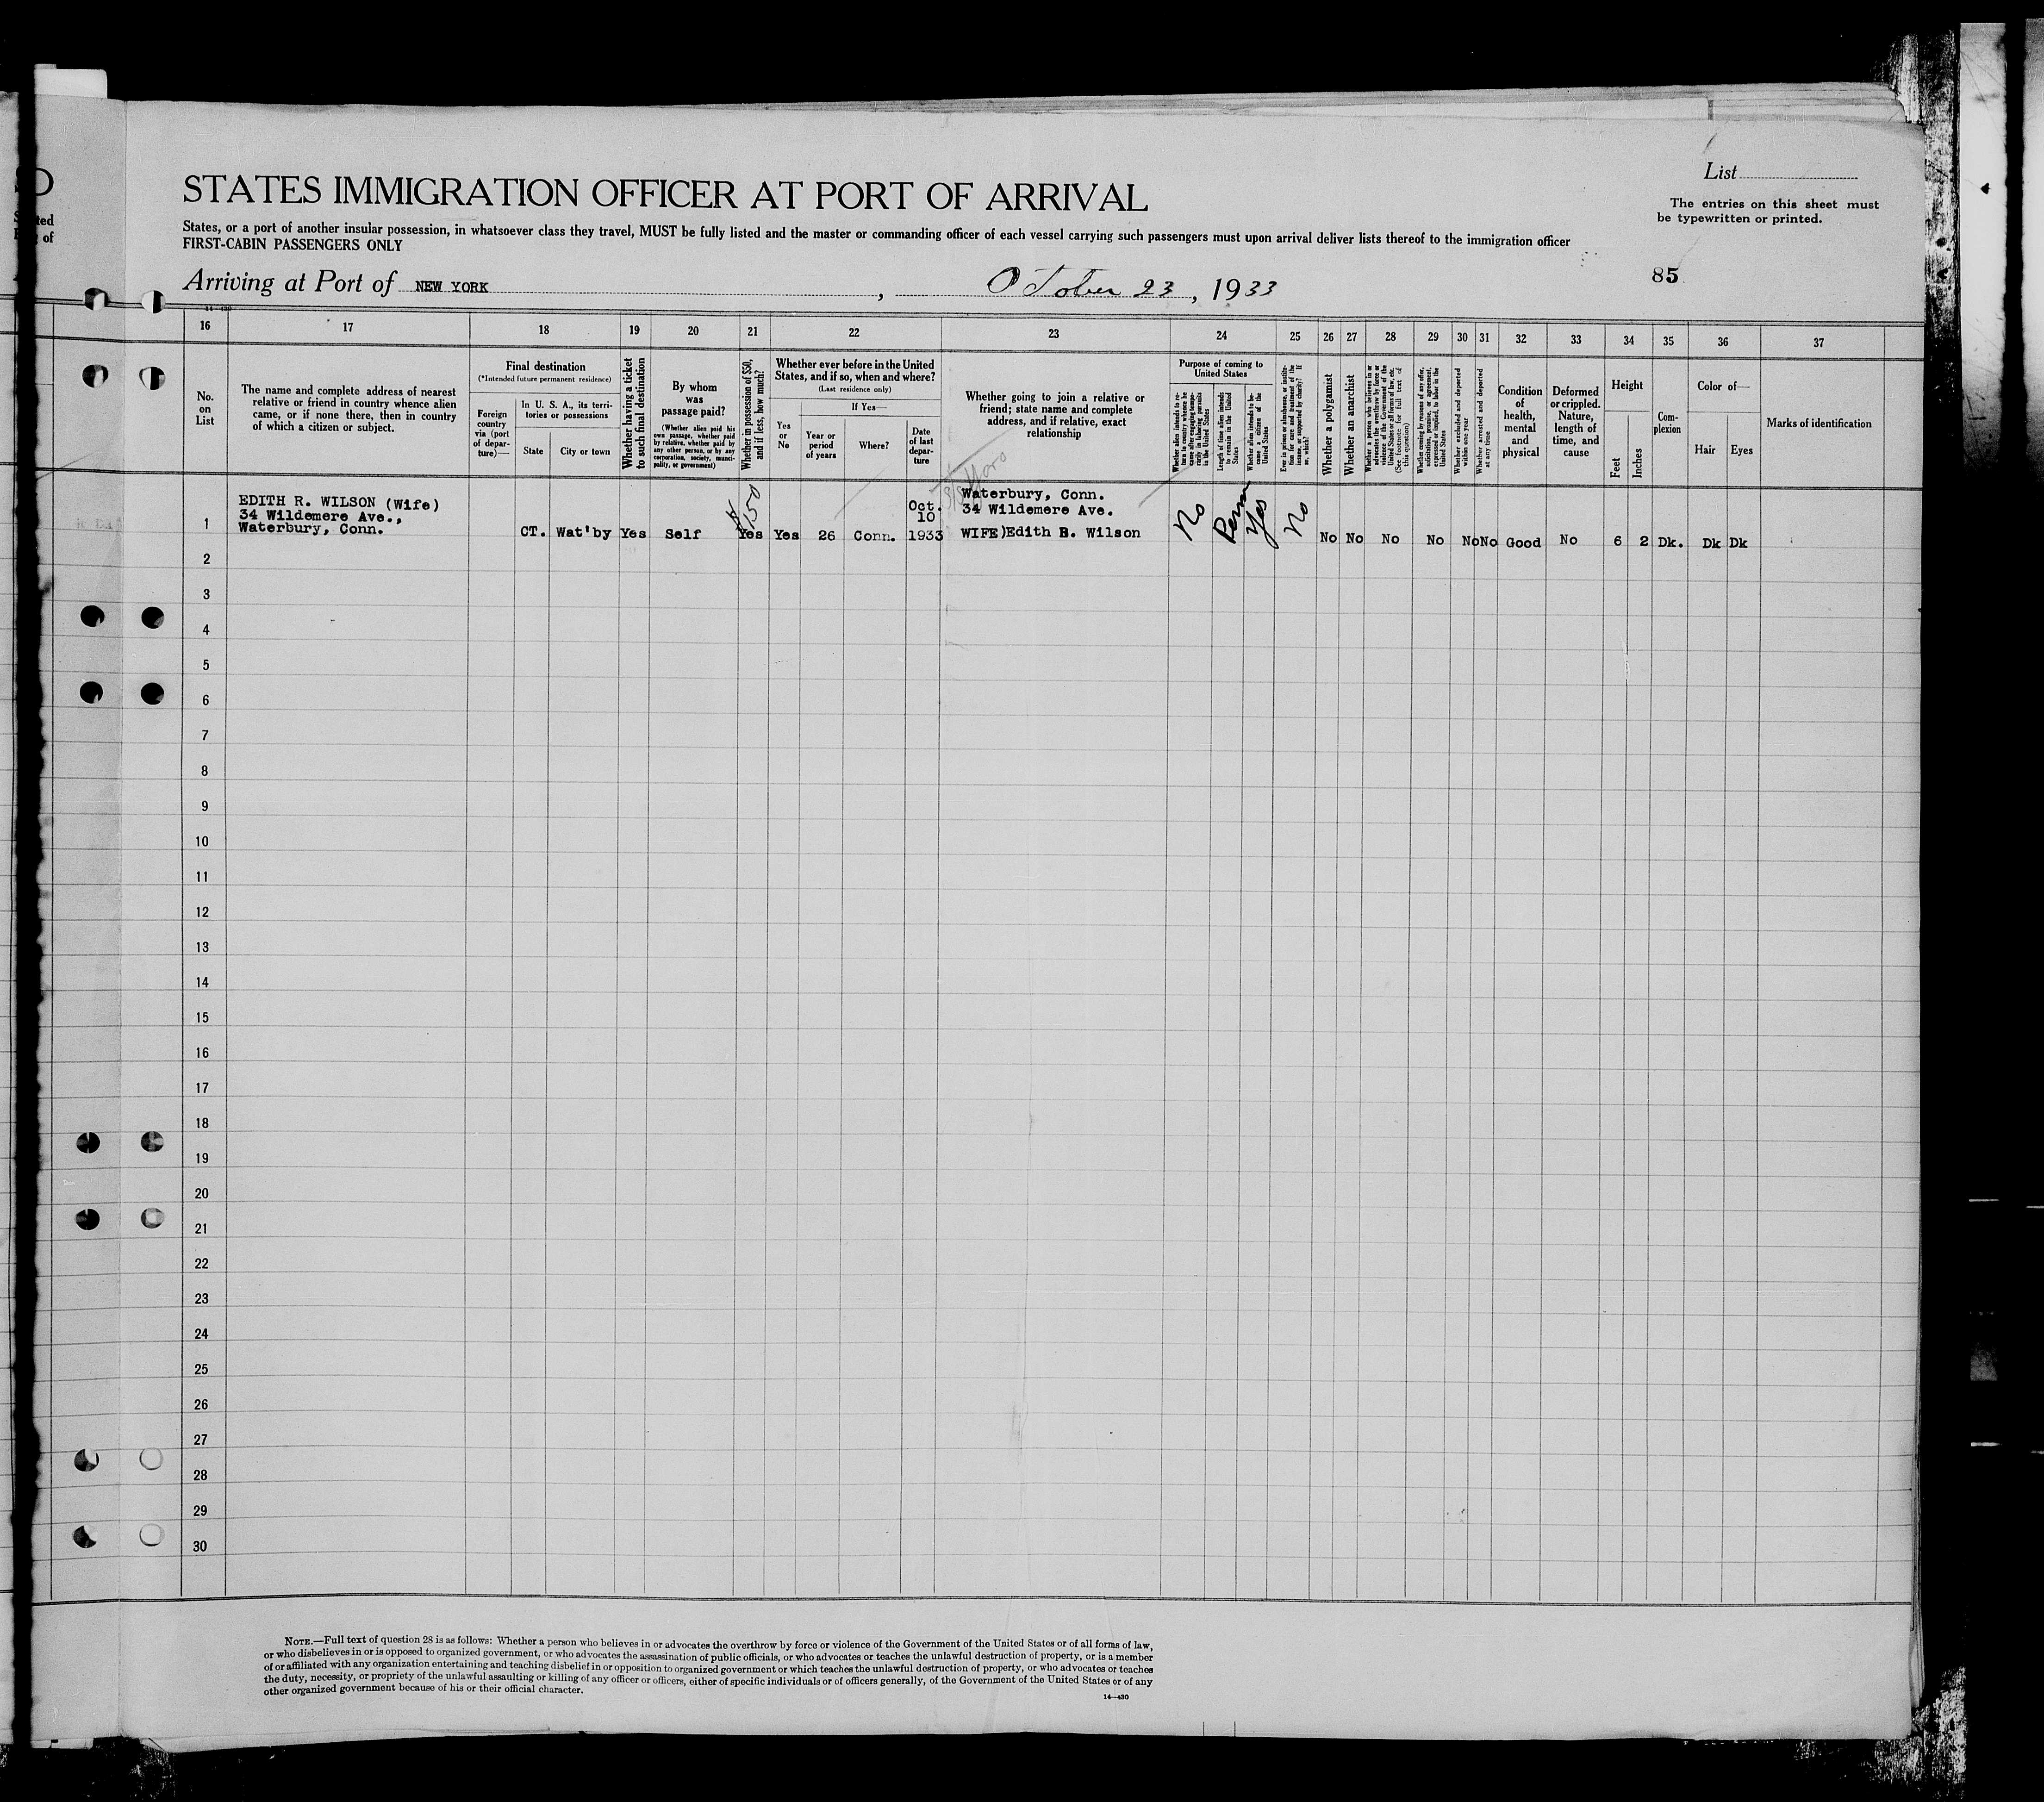 STATES IMMIGRATION OFFICER AT PORT OF ARRIVAL
States, or a port of another insular possession, in whatsoever class they travel, MUST be fully listed and the master or commanding officer of each vessel carrying such passengers must upon arrival deliver lists thereof to the immigration officer
FIRST-CABIN PASSENGERS ONLY
List
The entries on this sheet must
be typewritten or printed.
Arriving at Port of NEW YORK, October 23, 1933
85
16 17 18 19 20 21 22 23 24 25 26 27 28 29 30 31 32 33 34 35 36 37
No.
on
List
The name and complete address of nearest
relative or friend in country whence alien
came, or if none there, then in country
of which a citizen or subject.
Final destination
(*Intended future permanent residence)
Foreign
country
via (port
of depar-
ture)—
In U. S. A., its terri-
tories or possessions
State
City or town
Whether having a ticket
to such final destination
By whom
was
passage paid?
(Whether alien paid his
own passage, whether paid
by relative, whether paid by
any other person, or by any
corporation, society, munici-
pality, or government)
Whether in possession of $50,
and if less, how much?
Whether ever before in the United
States, and if so, when and where?
(Last residence only)
Yes
or
No
If Yes—
Year or
period
of years
Where?
Date
of last
depar-
ture
Whether going to join a relative or
friend; state name and complete
address, and if relative, exact
relationship
Purpose of coming to
United States
Whether alien intends to re-
turn to country whence he
came after engaging tempo-
rarily in laboring pursuits
in the United States
Length of time alien intends
to remain in the United
States
Whether alien intends to be-
come a citizen of the
United States
Ever in prison or almshouse, or institu-
tion for care and treatment of the
insane, or supported by charity? If
so, which?
Whether a polygamist
Whether an anarchist
Whether a person who believes in or
advocates the overthrow by force or
violence of the Government of the
United States or all forms of law, etc.
(See footnote for full text of
this question)
Whether coming by reasons of any offer,
solicitation, promise, or agreement,
expressed or implied, to labor in the
United States
Whether excluded and deported
within one year
Whether arrested and deported
at any time
Condition
of
health,
mental
and
physical
Deformed
or crippled.
Nature,
length of
time, and
cause
Height
Feet
Inches
Com-
plexion
Color of—
Hair
Eyes
Marks of identification
EDITH R. WILSON (Wife)
34 Wildemere Ave.,
Waterbury, Conn.
1 CT. Wat'by Yes Self Yes $150 Yes 26 Conn.
Oct.
10
1933
Waterbury, Conn.
34 Wildemere Ave.
WIFE)Edith B. Wilson
No Perm Yes No No No No No No No Good No 6 2 Dk. Dk Dk
2
3
4
5
6
7
8
9
10
11
12
13
14
15
16
17
18
19
20
21
22
23
24
25
26
27
28
29
30
NOTE.—Full text of question 28 is as follows: Whether a person who believes in or advocates the overthrow by force or violence of the Government of the United States or of all forms of law,
or who disbelieves in or is opposed to organized government, or who advocates the assassination of public officials, or who advocates or teaches the unlawful destruction of property, or is a member
of or affiliated with any organization entertaining and teaching disbelief in or opposition to organized government or which teaches the unlawful destruction of property, or who advocates or teaches
the duty, necessity, or propriety of the unlawful assaulting or killing of any officer or officers, either of specific individuals or of officers generally, of the Government of the United States or of any
other organized government because of his or their official character.
14—430